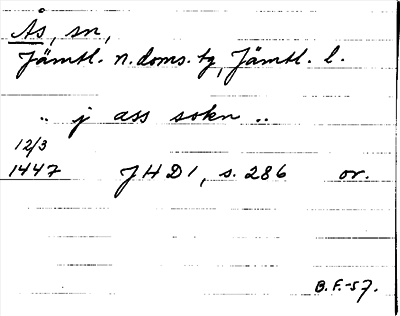 Ås, sn,
Jämtl. n. doms. tg, Jämtl. l.
.. j ass sokn ..
12/3
1447 JHD1, s. 286 or.
B.F.-57.